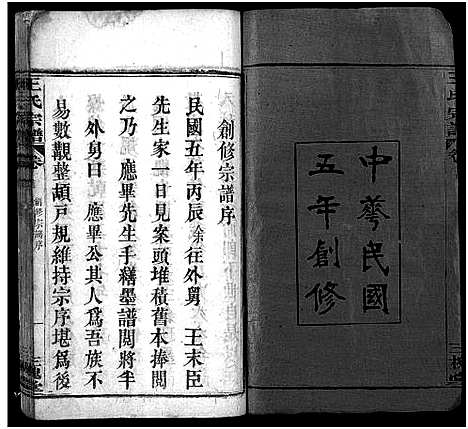 中華民國
五年創修
創修宗譜序
民國五年丙辰余往外舅 王末臣
先生家一日見案頭堆積舊本捧閱
之乃 應畢先生手繕墨譜閱將半
外舅曰 應畢公其人爲吾族不
易數觀整頓戸規維持宗序堪爲後
王氏宗譜 卷
創修宗譜序
一
三槐堂